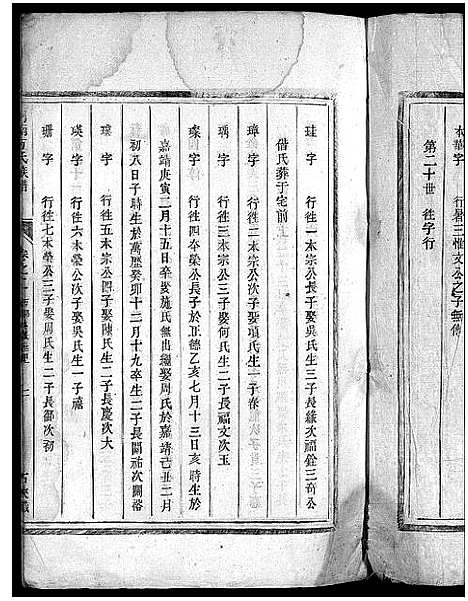 本華字 行暑三惟文公之子無傳
第二十世 往字行
珪字 行往一本宗公長子娶吳氏生三子長緣次福銓三奇公
偕氏葬于宅前
璋字 行往二本宗公次子娶項氏生一子春
瑀字 行往三本宗公三子娶何氏生二子長福文次玉
璨字 行往四本榮公長子於正德乙亥七月十三日亥時生於
嘉靖庚寅二月十五日卒娶施氏無出繼娶周氏於嘉靖己丑二月
初八日子時生於萬歷癸卯十二月十九卒生二子長闢祐次闢器
璨字 行往五本宗公四子娶陳氏生二子長慶次大
瑛字 行往六本榮公次子娶吳氏生一子
珊字 行往七本榮公三子娶周氏生二子長郁次初